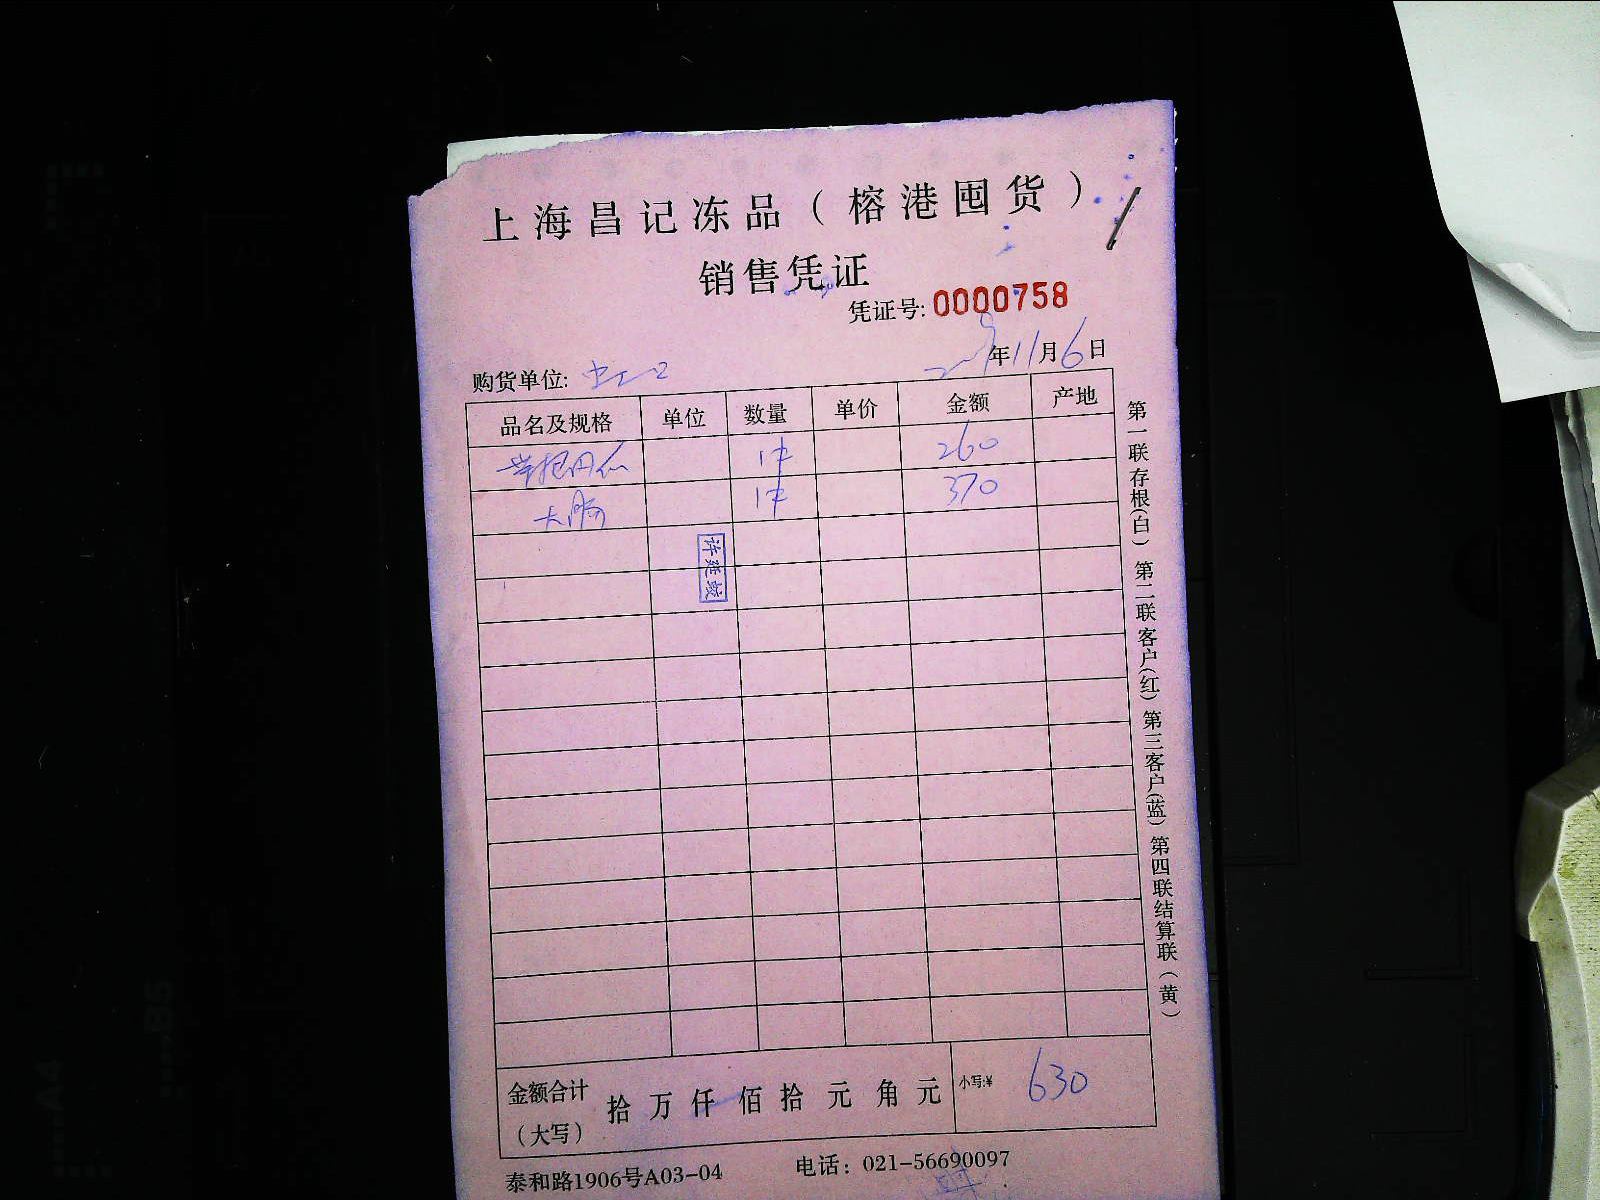 上海昌记冻品（榕港囤货）
销售凭证
凭证号: 0000758
年11月6日
购货单位: 虹口
品名及规格 单位 数量 单价 金额 产地
1件 260
大肠 1件 370
许延蛟
金额合计（大写） 拾 万 仟 佰 拾 元 角 元 小写:¥ 630
泰和路1906号A03-04 电话：021-56690097
第一联存根(白) 第二联客户(红) 第三客户(蓝) 第四联结算联（黄）